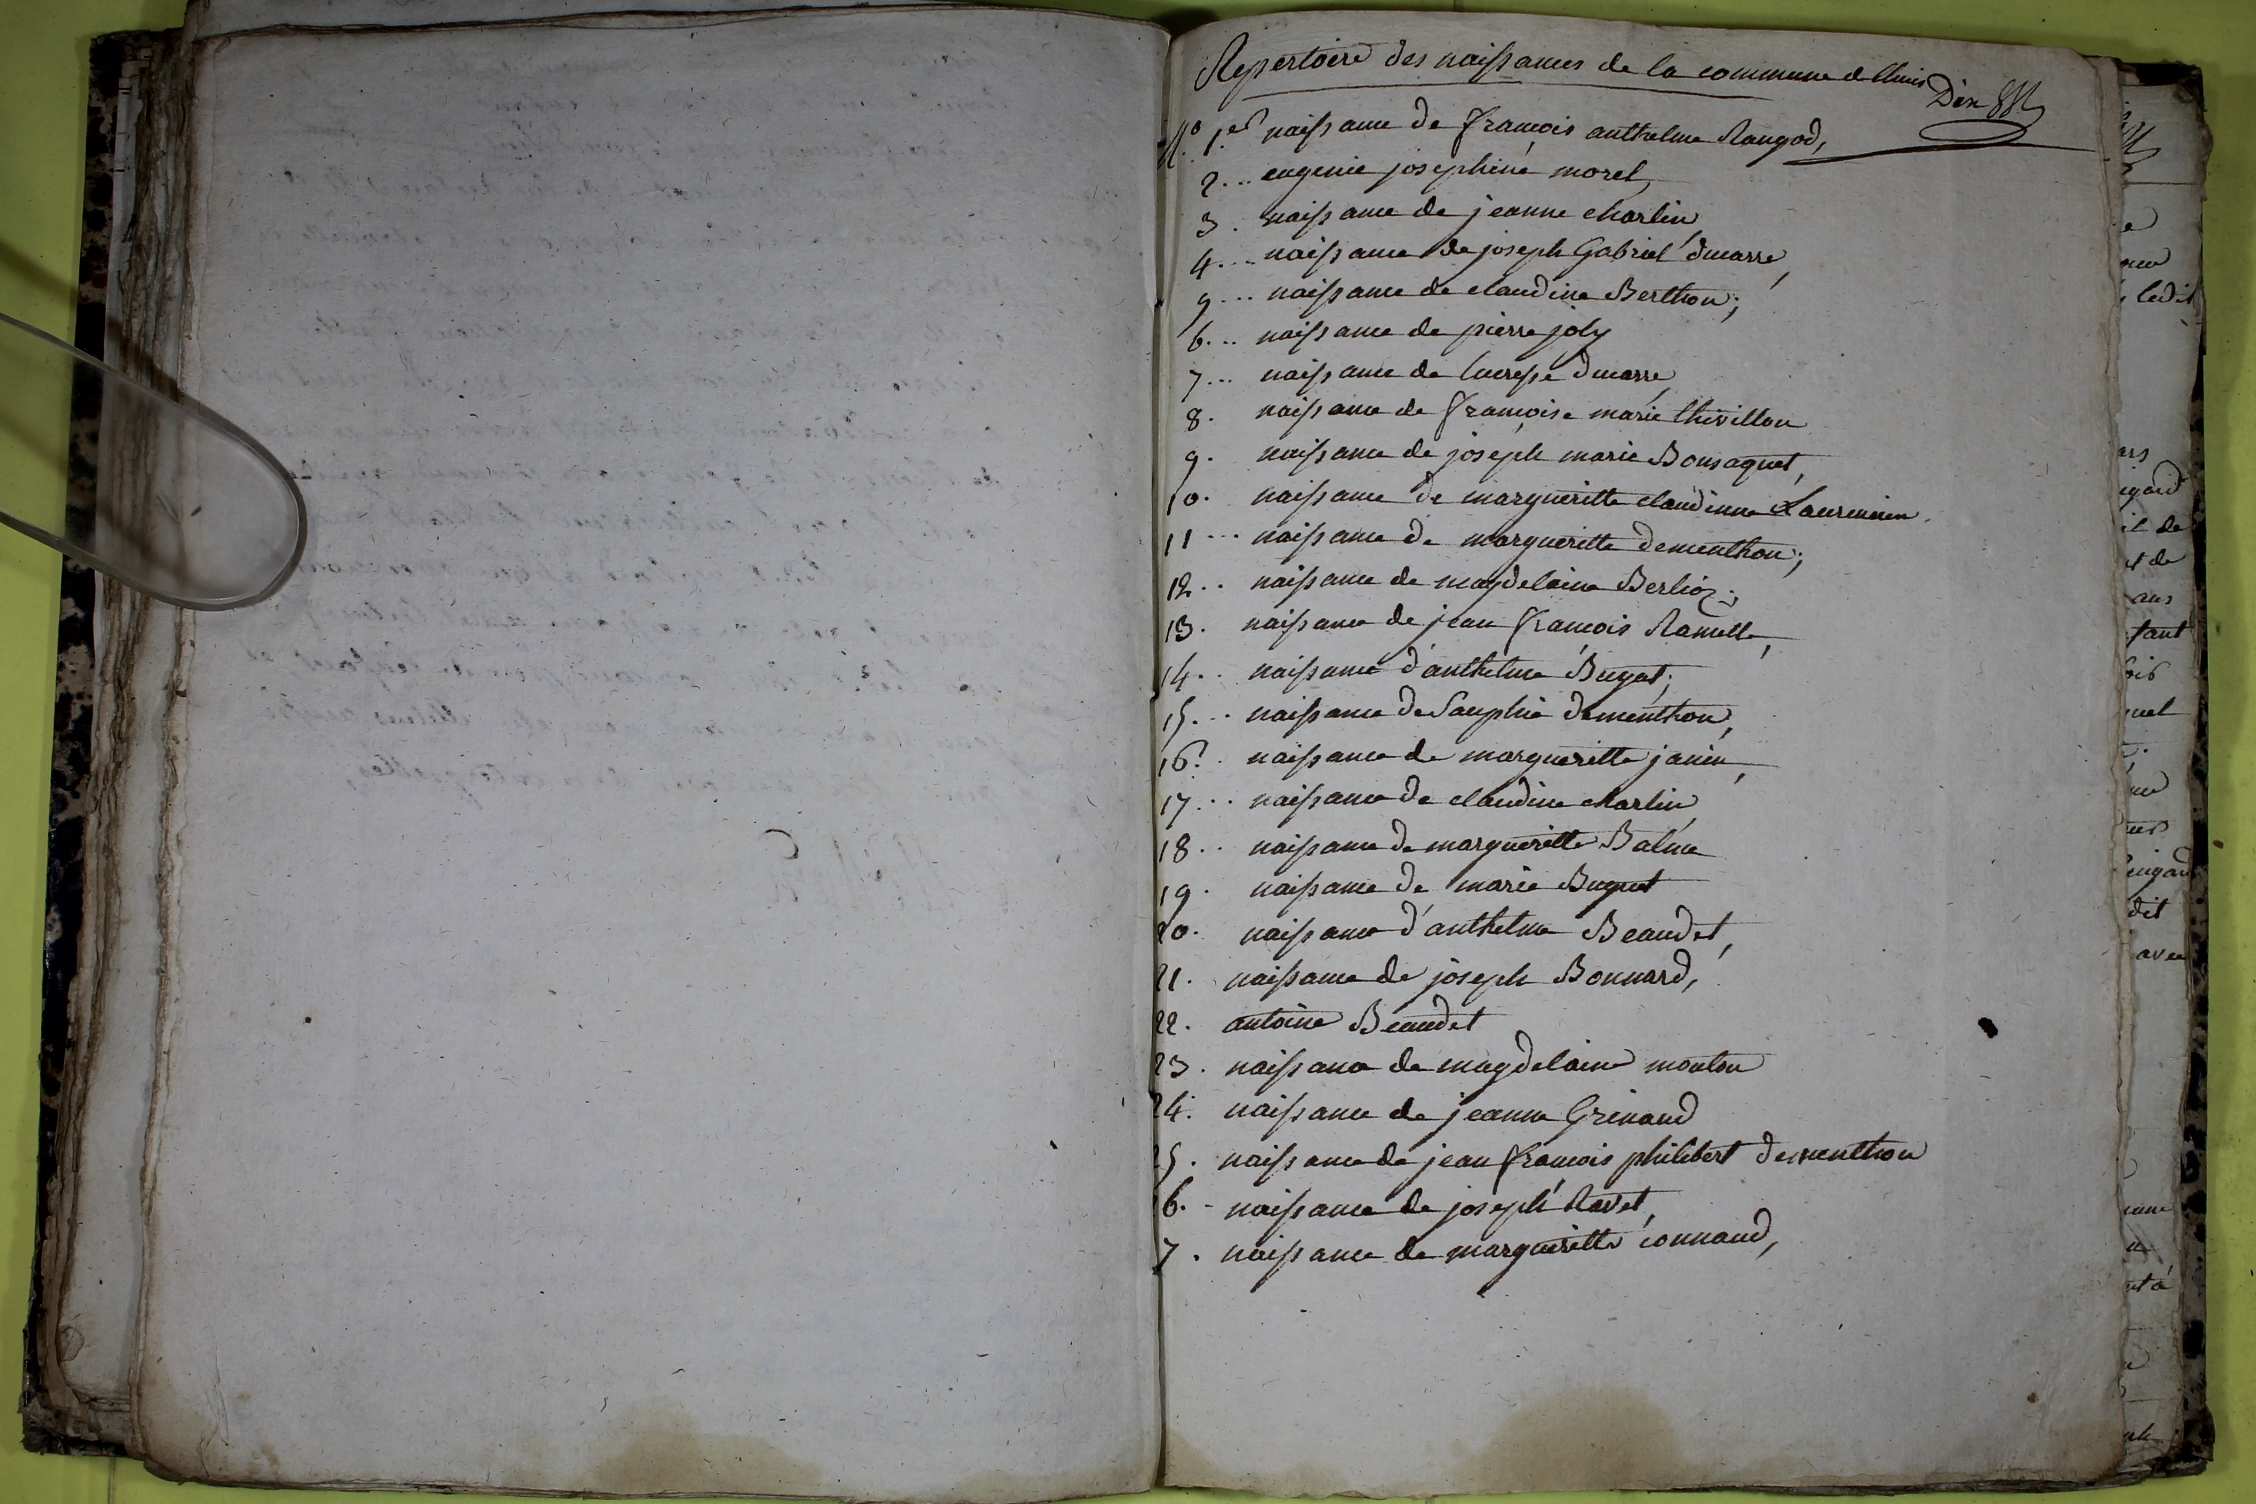 Repertoire des naissances de la commune de
N.o 1.er naissance de françois anthelme Rangod,
2... eugenie josephine morel,
3. naissance de jeanne charlin,
4... naissance de joseph Gabriel ducarre,
5... naissance de claudine Berthon;
6... naissance de pierre joly
7... naissance de lucresse ducarre,
8. naissance de françoise marie thivillon
9. naissance de joseph marie
10. naissance de margueritte claudinne
11... naissance de margueritte dementhon;
12.. naissance de magdelaine Berlioz;
13. naissance de jean françois Ramelle,
14.. naissance d'anthelme Bugat;
15... naissance de Sauphie dementhon,
16.. naissance de margueritte janin,
17... naissance de claudine charlin,
18.. naissance de margueritte Balme
19. naissance de marie Buguet
20. naissance d'anthelme Beaudet,
21. naissance de joseph Bonnard,
22. antoine Beaudet
23. naissance de magdelaine mouton
24. naissance de jeanne Grinand
25. naissance de jean françois philibert dementhon
6. - naissance de joseph Ravet,
7. naissance de margueritte connaud,